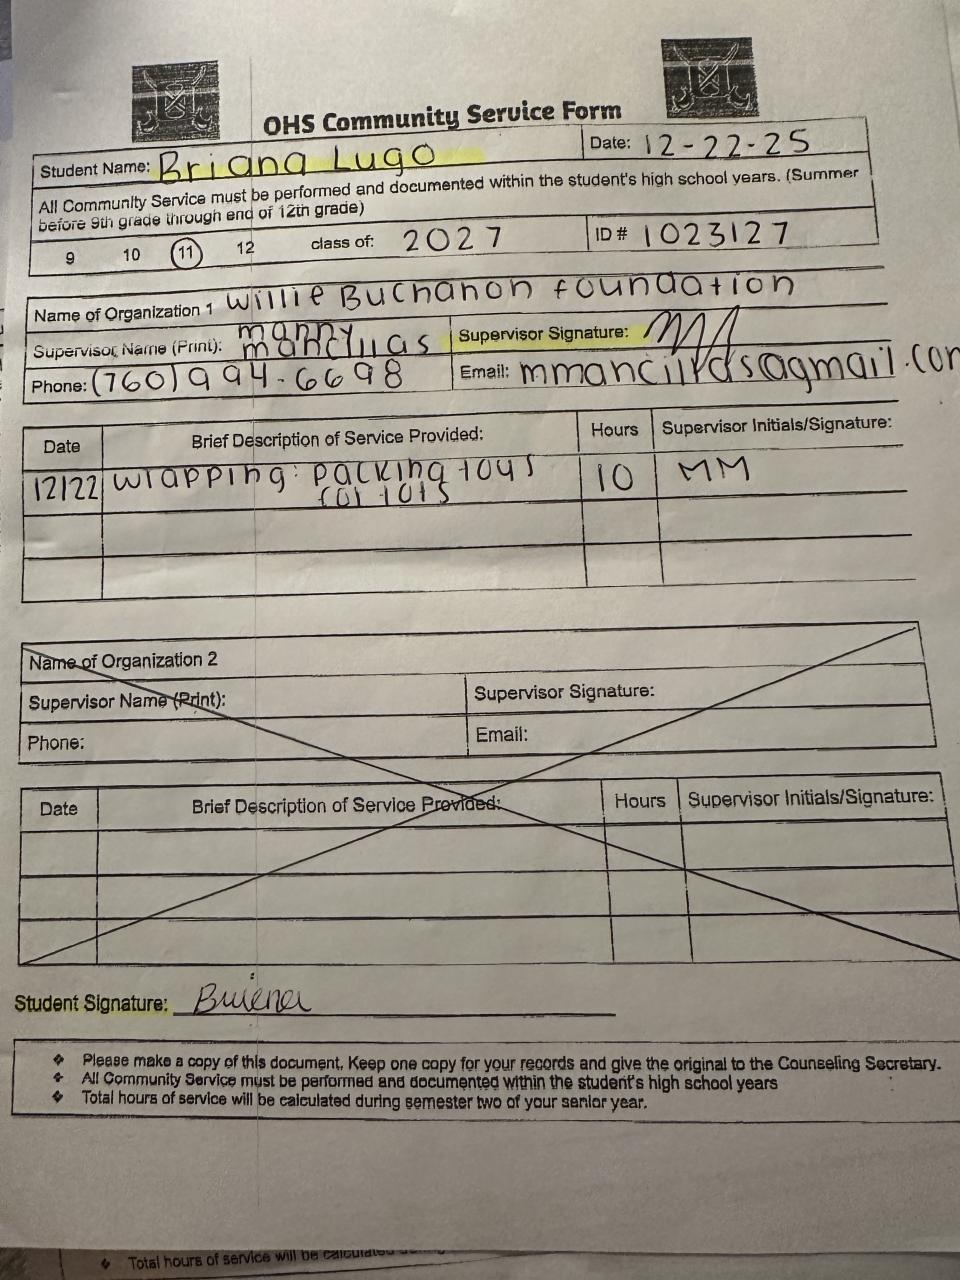 OHS Community Service Form
Student Name: Briana Lugo Date: 12-22-25
All Community Service must be performed and documented within the student's high school years. (Summer
before 9th grade through end of 12th grade)
9 10 11 12 class of: 2027 ID # 1023127
Name of Organization 1 Willie Buchanon foundation
Supervisor Name (Print): manny mancillas Supervisor Signature:
Phone: (760) 994-6698 Email: mmancillas@gmail.com
Date Brief Description of Service Provided: Hours Supervisor Initials/Signature:
12/22 wrapping: packing toys 10 MM
for tots
Name of Organization 2
Supervisor Name (Print): Supervisor Signature:
Phone: Email:
Date Brief Description of Service Provided: Hours Supervisor Initials/Signature:
Student Signature: Briana
❖ Please make a copy of this document. Keep one copy for your records and give the original to the Counseling Secretary.
❖ All Community Service must be performed and documented within the student's high school years
❖ Total hours of service will be calculated during semester two of your senior year.
❖ Total hours of service will be calculated